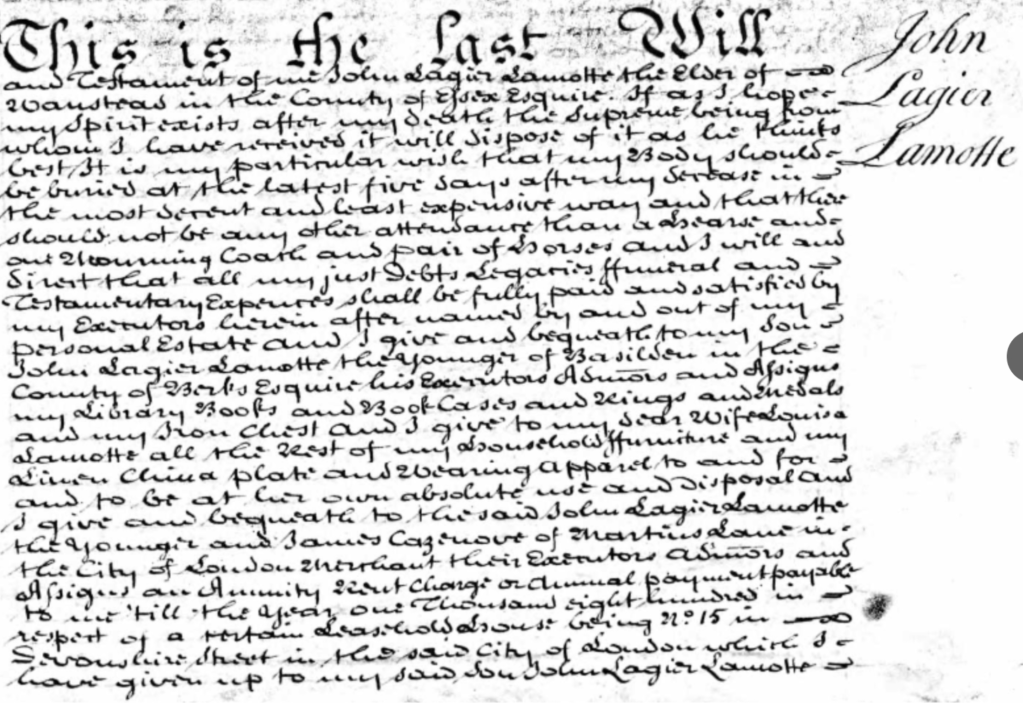 This is the last Will
John
Lagier
Lamotte
and Testament of me John Lagier Lamotte the Elder of
Wanstead in the County of Essex Esquire. If as I hope
my Spirit exists after my death the Supreme being from
whom I have received it will dispose of it as he thinks
best It is my particular wish that my Body should
be buried at the latest five days after my decease in
the most decent and least expensive way and that there
should not be any other attendance than a Hearse and
one Mourning Coach and pair of Horses and I will and
direct that all my just Debts Legacies ffuneral and
Testamentary Expences shall be fully paid and satisfied by
my Executors herein after named by and out of my
personal Estate and I give and bequeath to my Son
John Lagier Lamotte the Younger of Basilden in the
County of Berks Esquire his Executors Admors and Assigns
my Library Books and Book Cases and Rings and Medals
and my Iron Chest and I give to my dear Wife Louisa
Lamotte all the Rest of my Household ffurniture and my
Linen China plate and Wearing Apparel to and for
and to be at her own absolute use and disposal and
I give and bequeath to the said John Lagier Lamotte
the Younger and James Cazenove of Martins Lane in
the City of London Merchant their Executors Admors and
Assigns an Annuity Rent Charge or Annual payment payable
to me 'till the Year one Thousand eight hundred in
respect of a certain Leasehold House being No. 15 in
Devonshire Street in the said City of London which I
have given up to my said Son John Lagier Lamotte